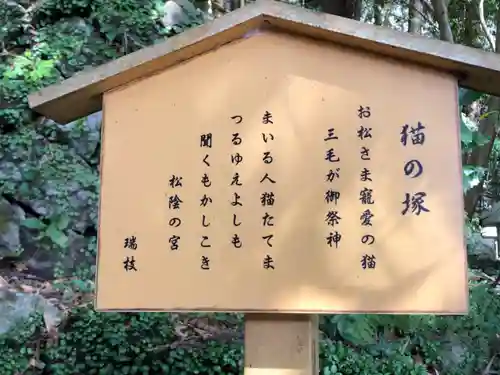 猫の塚
お松さま寵愛の猫
三毛が御祭神
まいる人猫たてま
つるゆえよしも
聞くもかしこき
松陰の宮
瑞枝